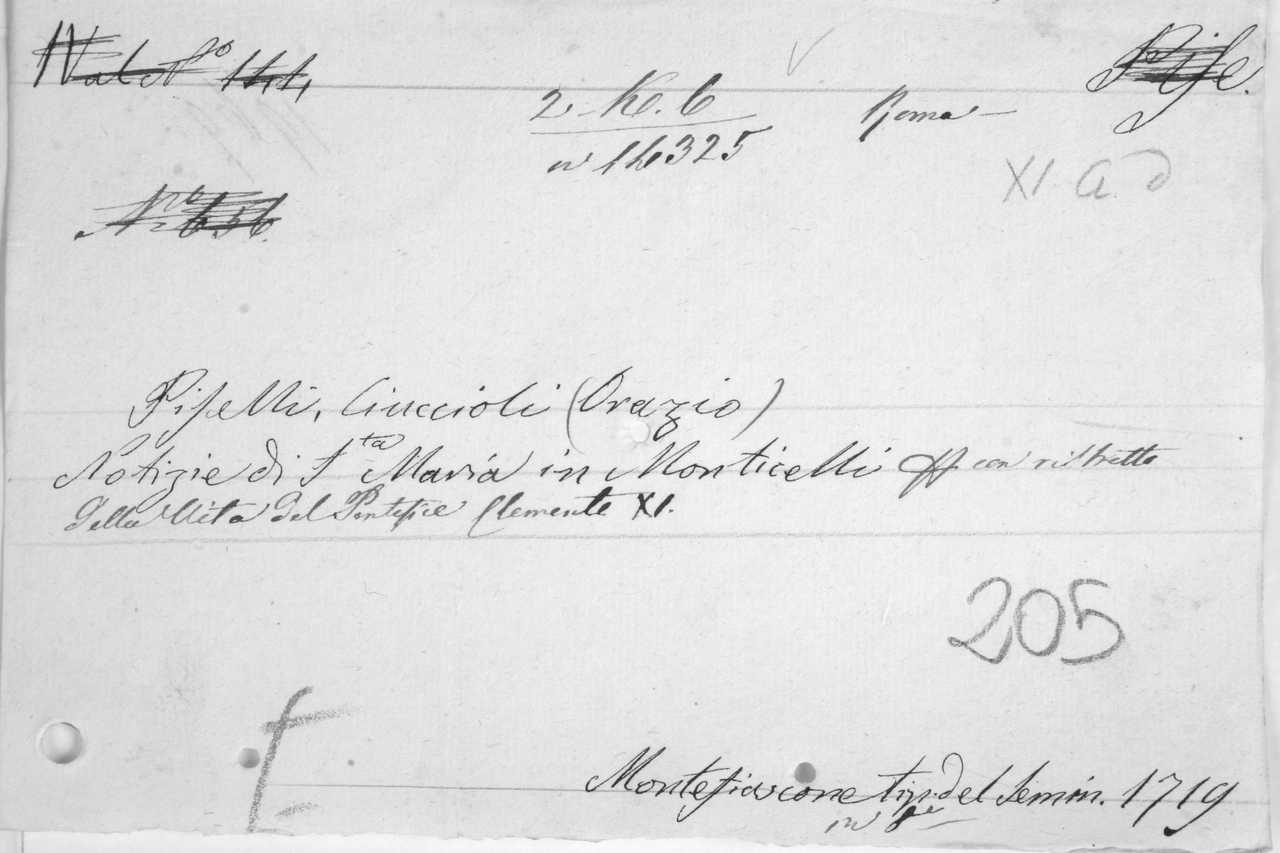 Roma
2-K.6
n 14325
XI. a. d
Piselli, Ciuccioli (Orazio)
Notizie di S.ta Maria in Monticelli con ristretto
della Vita del Pontefice Clemente XI.
205
Montefiascone tip. del Semin. 1719
in 8.